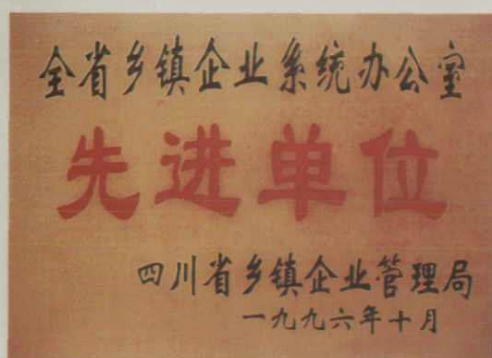 全省乡镇企业系统办公室
先进单位
四川省乡镇企业管理局
一九九六年十月